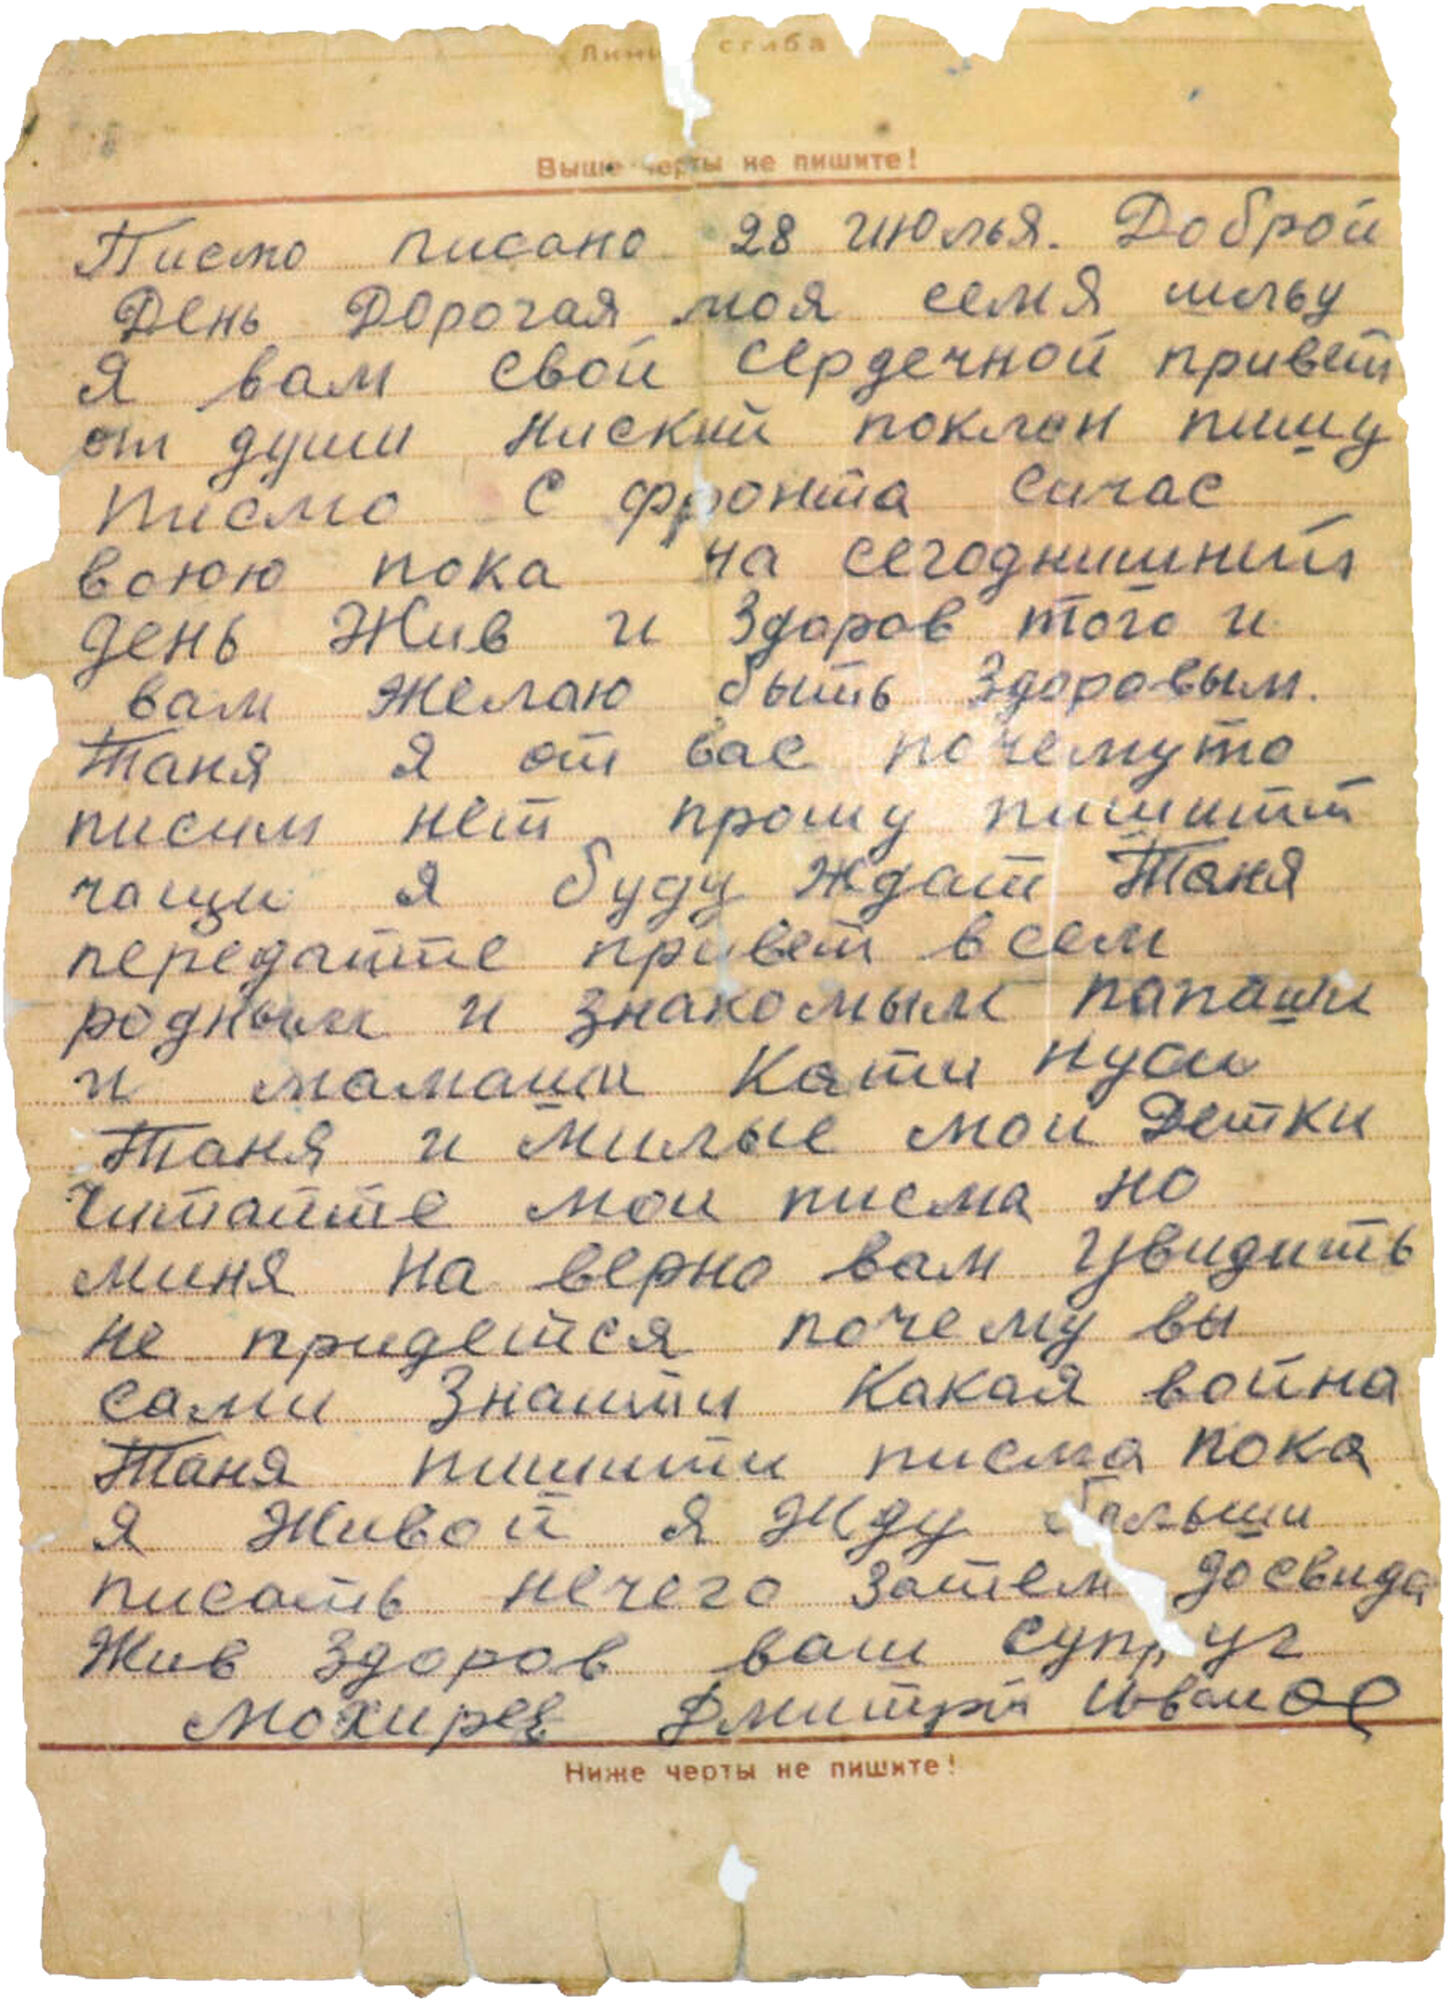 Линия сгиба
Выше черты не пишите!
Писмо писано 28 июлья. Доброй
День Дорогая моя семя шльу
я вам свой сердечной привет
от души ниский поклон пишу
Писмо с фронта сичас
воюю пока на сегоднишний
день Жив и Здоров того и
вам желаю быть Здоровым.
Таня я от вас почемуто
писим нет прошу пишити
чащи я буду ждат Таня
передайте привет всем
родным и знакомым папаши
и мамаши Кати Нуси
Таня и милые мои Детки
Читайте мои писма но
миня на верно вам увидить
не придетса почему вы
сами Знаити какая война
Таня пишити писма пока
я Живой я Жду больши
писать нечего Затем досвида
Жив Здоров ваш супруг
Мохирев Дмитрий
Ниже черты не пишите!